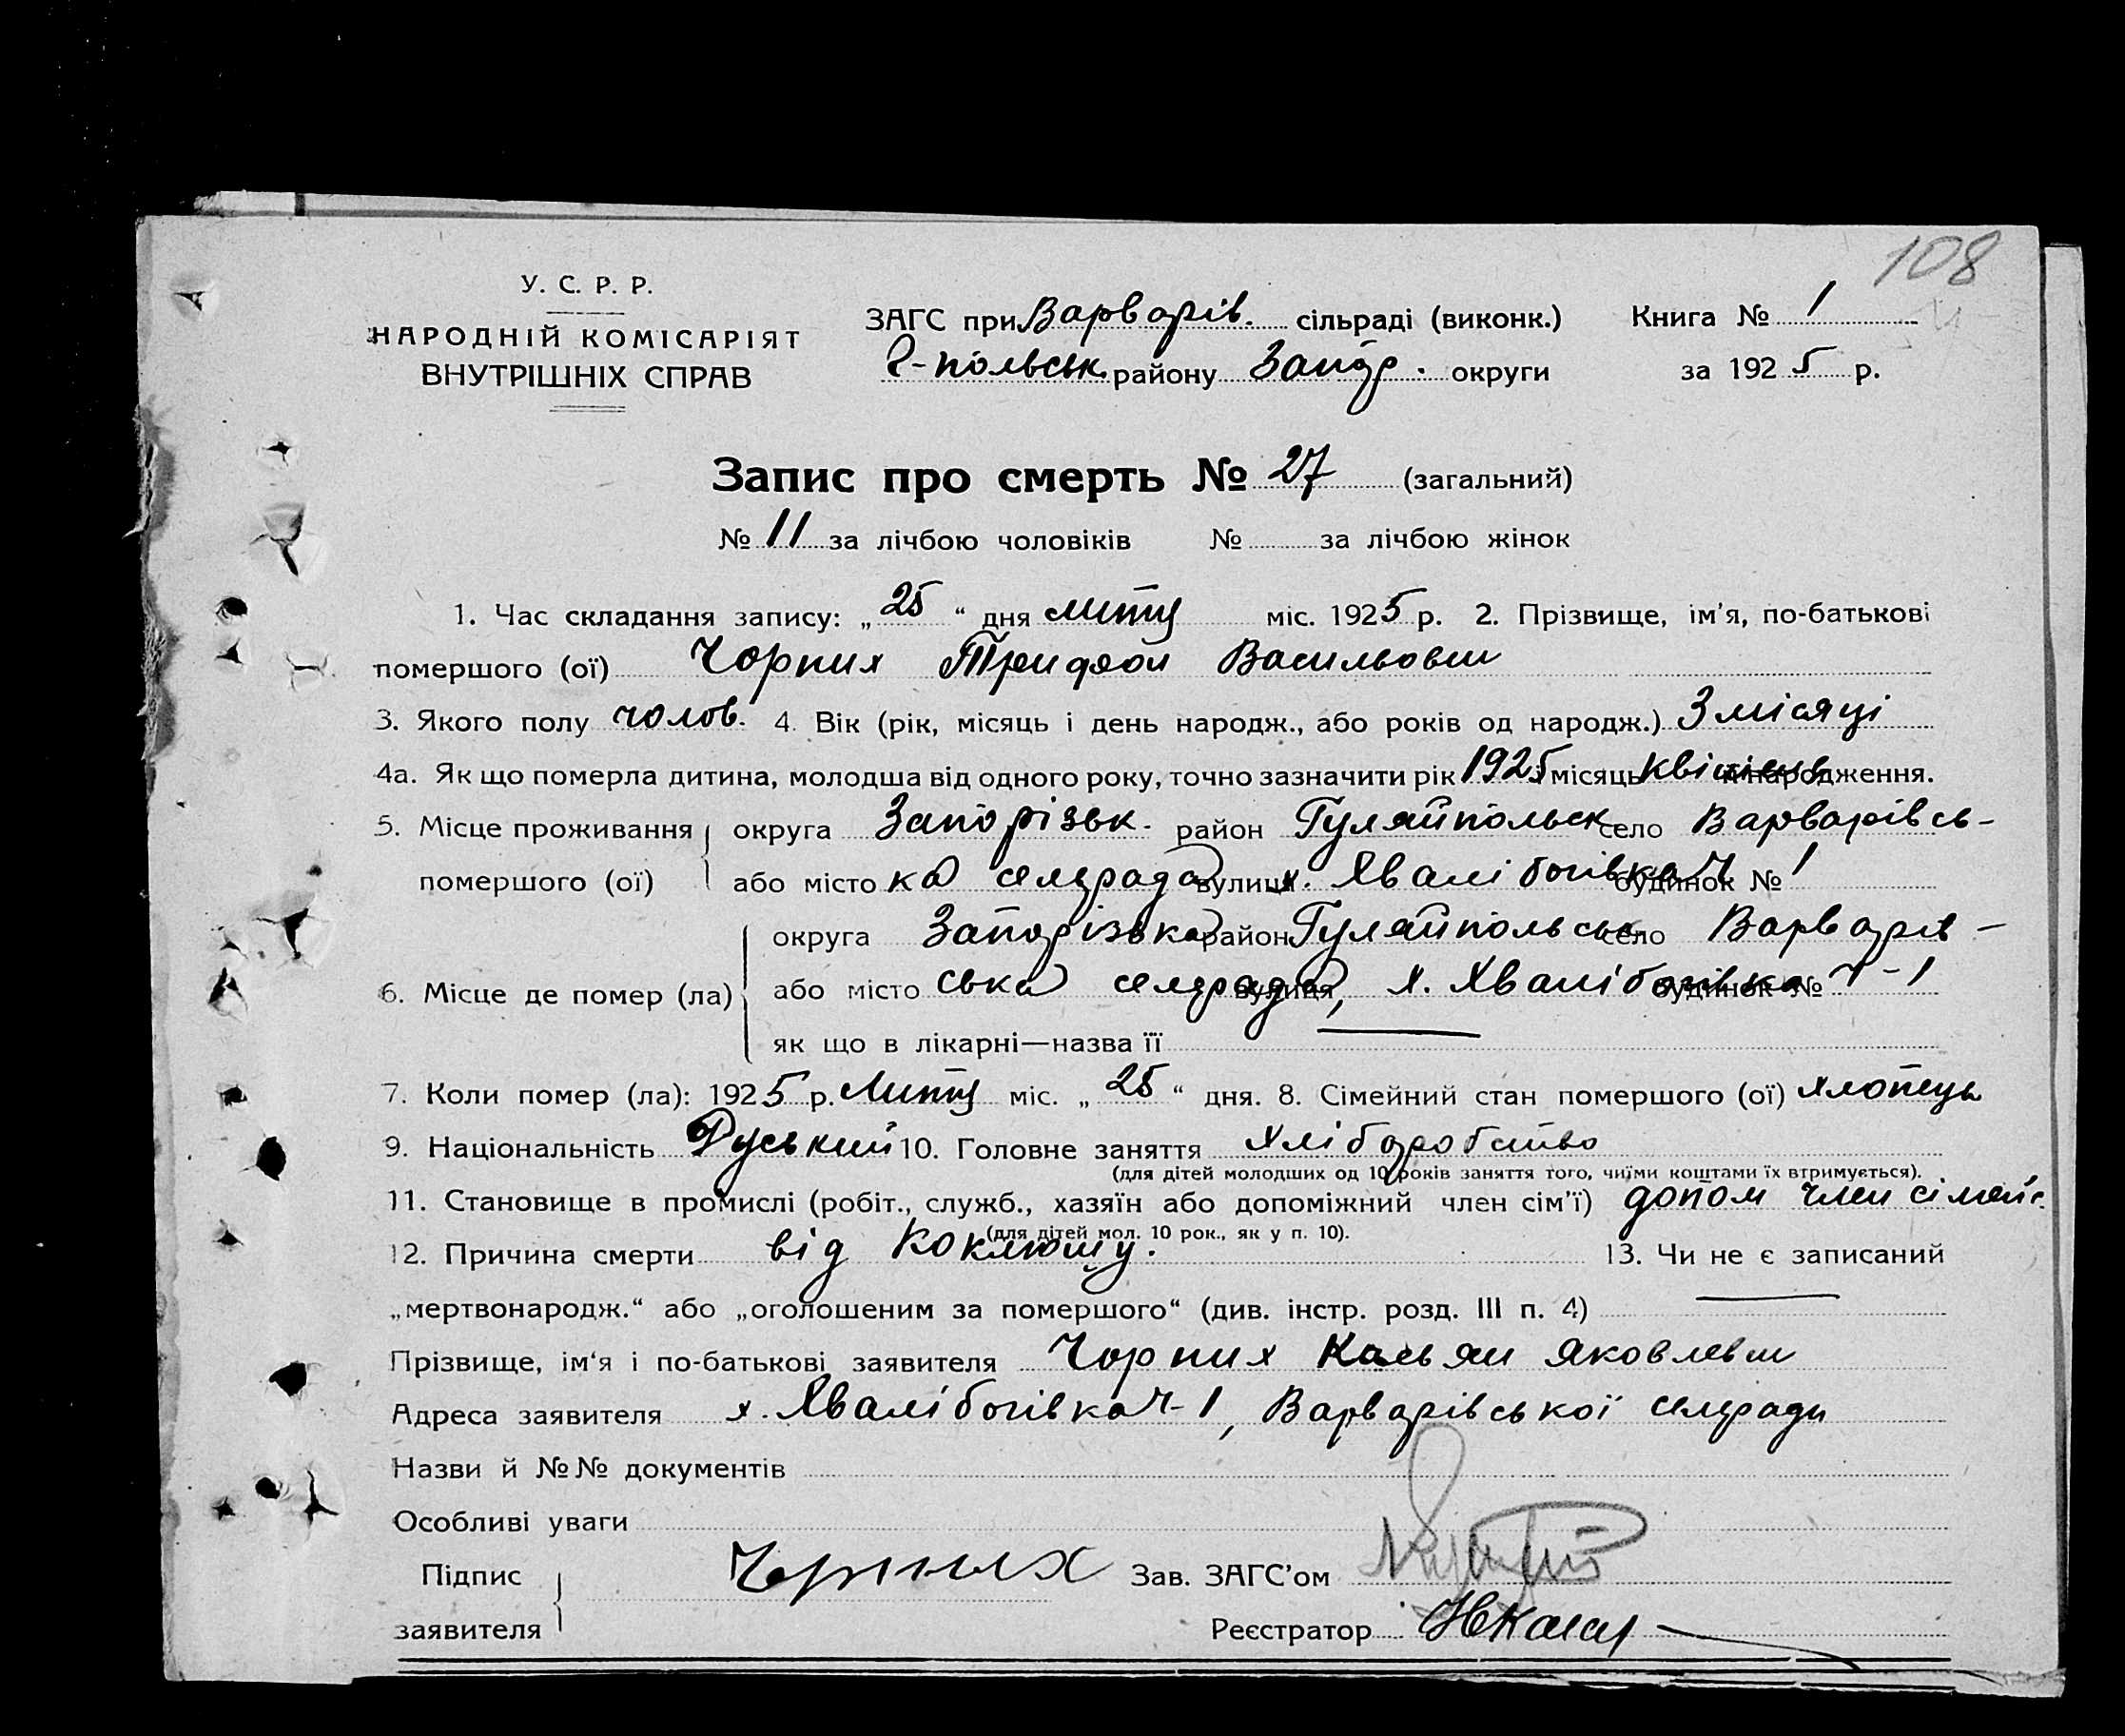 108
У. С. Р. Р.
НАРОДНІЙ КОМІСАРІЯТ
ВНУТРІШНІХ СПРАВ
ЗАГС при Варварів. сільраді (виконк.) Книга № 1
Г-польськ. району Запор. округи за 1925 р.
Запис про смерть № 27 (загальний)
№ 11 за лічбою чоловіків № за лічбою жінок
1. Час складання запису: „25“ дня люту міс. 1925 р. 2. Прізвище, ім'я, по-батькові
помершого (ої) Чорних Трифон Васильович
3. Якого полу чолов. 4. Вік (рік, місяць і день народж., або років од народж.) 3 місяці
4а. Як що померла дитина, молодша від одного року, точно зазначити рік 1925 місяць народження.
5. Місце проживання округа Запорізьк. район Гуляйпольск село Варварівсь-
помершого (ої) або місто ка селрада вулиця х. Хвалібогівка ч будинок № 1
округа Запорізька район Гуляйпольськ село Варварів-
6. Місце де помер (ла) або місто ська селрада, вулиця х. Хвалібогівка будинок № ч-1
як що в лікарні—назва її —
7. Коли помер (ла): 1925 р. Люту міс. „25“ дня. 8. Сімейний стан помершого (ої) хлопець
9. Національність Руський 10. Головне заняття хліборобство
(для дітей молодших од 10 років заняття того, чиїми коштами їх втримується).
11. Становище в промислі (робіт., служб., хазяїн або допоміжний член сім'ї) допом член сімейс.
(для дітей мол. 10 рок., як у п. 10).
12. Причина смерти від Коклюшу. 13. Чи не є записаний
„мертвонародж.“ або „оголошеним за помершого“ (див. інстр. розд. III п. 4) —
Прізвище, ім'я і по-батькові заявителя Чорних Касьян Яковлевич
Адреса заявителя х. Хвалібогівка ч-1, Варварівської селради
Назви й №№ документів
Особливі уваги
Підпис заявителя Черних Зав. ЗАГС'ом
Реєстратор